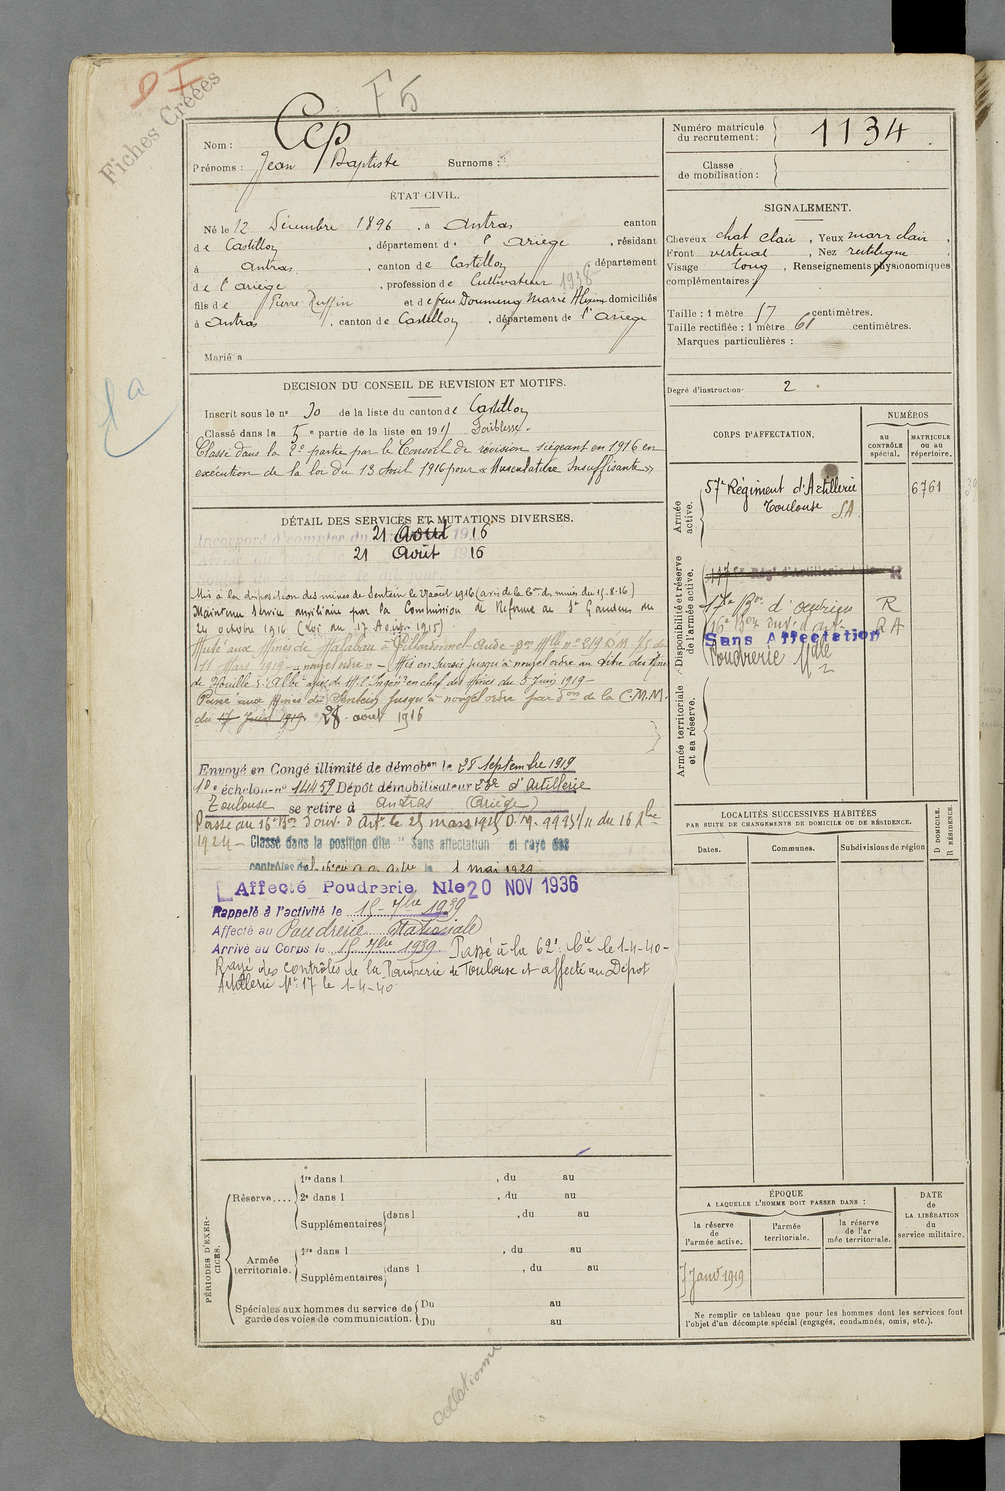 Fiches Créées
F5
Nom : Cep
Prénoms : Jean Baptiste Surnoms :
Numéro matricule du recrutement : 1134
Classe de mobilisation :
ÉTAT CIVIL.
Né le 12 Décembre 1896, à Antras canton
de Castillon, département de l'Ariège, résidant
à Antras, canton de Castillon, département
de l'Ariège, profession de Cultivateur 1938
fils de Pierre Ruffin et de feue Doumenq Marie domiciliés
à Antras, canton de Castillon, département de l'Ariège
Marié à
SIGNALEMENT.
Cheveux chat clair, Yeux marr clair,
Front vertical, Nez rectiligne,
Visage long, Renseignements physionomiques
complémentaires :
Taille : 1 mètre 57 centimètres.
Taille rectifiée : 1 mètre 61 centimètres.
Marques particulières :
Degré d'instruction. 2
DECISION DU CONSEIL DE REVISION ET MOTIFS.
Inscrit sous le n° 30 de la liste du canton de Castillon
Classé dans la 5e partie de la liste en 1915 Faiblesse.
Classé dans la 2e partie par le Conseil de révision siégeant en 1916 en
exécution de la loi du 13 Avril 1916 pour « Musculature Insuffisante »
DÉTAIL DES SERVICES ET MUTATIONS DIVERSES.
Incorporé à compter du 21 Août 1916
21 Août 16
Mis à la disposition des mines de Sentein le 28 août 1916 (avis de la Con des mines du 15.8.16)
Maintenu Service auxiliaire par la Commission de Réforme de St Gaudens du
24 octobre 1916 (Loi du 17 Août 1915)
Muté aux Mines de
11 Mars 1919 « nouvel ordre » – Mis en Sursis jusqu'à nouvel ordre au titre des Mines
de Houille d'Albi avis de M. l'Ingén. en chef des Mines du 5 Juin 1919 –
Passé aux Mines de Sentein jusqu'à nouvel ordre par don de la C.M.M.
du 17 Juin 1919 28 août 1916
Envoyé en Congé illimité de démobon le 28 Septembre 1919
10e échelon n° 14459 Dépôt démobilisateur 23e d'Artillerie
Toulouse se retire à Antras (Ariège)
Passé au 16e Bon d'ouv. d'Art. le 25 mars 1925 D.M. du 16 Xbre
1924 – Classé dans la position dite "Sans affectation et rayé des
contrôles le 1 mai 1929
Affecté Poudrerie Nle 20 NOV 1936
Rappelé à l'activité le 15 – 7bre 1939
Affecté au Poudrerie Nationale
Arrivé au Corps le 15 7bre 1939. Passé à la 62e Bie le 1-4-40-
Rayé des contrôles de la Poudrerie de Toulouse et affecté au Dépôt
Artillerie N° 17 le 1-4-40
CORPS D'AFFECTATION.
NUMÉROS
AU CONTRÔLE spécial.
MATRICULE OU AU répertoire.
Armée active.
57e Régiment d'Artillerie 6761
Toulouse SA
Disponibilité et réserve de l'armée active.
17e Bon d'ouvriers R
16e Bon ouv. d'art. RA
Sans Affectation
Poudrerie Nale
Armée territoriale et sa réserve.
LOCALITÉS SUCCESSIVES HABITÉES
PAR SUITE DE CHANGEMENTS DE DOMICILE OU DE RÉSIDENCE.
D DOMICILE. R RÉSIDENCE.
Dates. Communes. Subdivisions de région
PÉRIODES D'EXERCICES.
Réserve....
1re dans l , du au
2e dans l , du au
Supplémentaires dans l , du au
Armée territoriale.
1re dans l , du au
Supplémentaires dans l , du au
Spéciales aux hommes du service de garde des voies de communication.
Du au
Du au
ÉPOQUE
A LAQUELLE L'HOMME DOIT PASSER DANS :
la réserve de l'armée active.
l'armée territoriale.
la réserve de l'armée territoriale.
DATE DE LA LIBÉRATION du service militaire.
Janv 1919
Ne remplir ce tableau que pour les hommes dont les services font
l'objet d'un décompte spécial (engagés, condamnés, omis, etc.).
Collationné